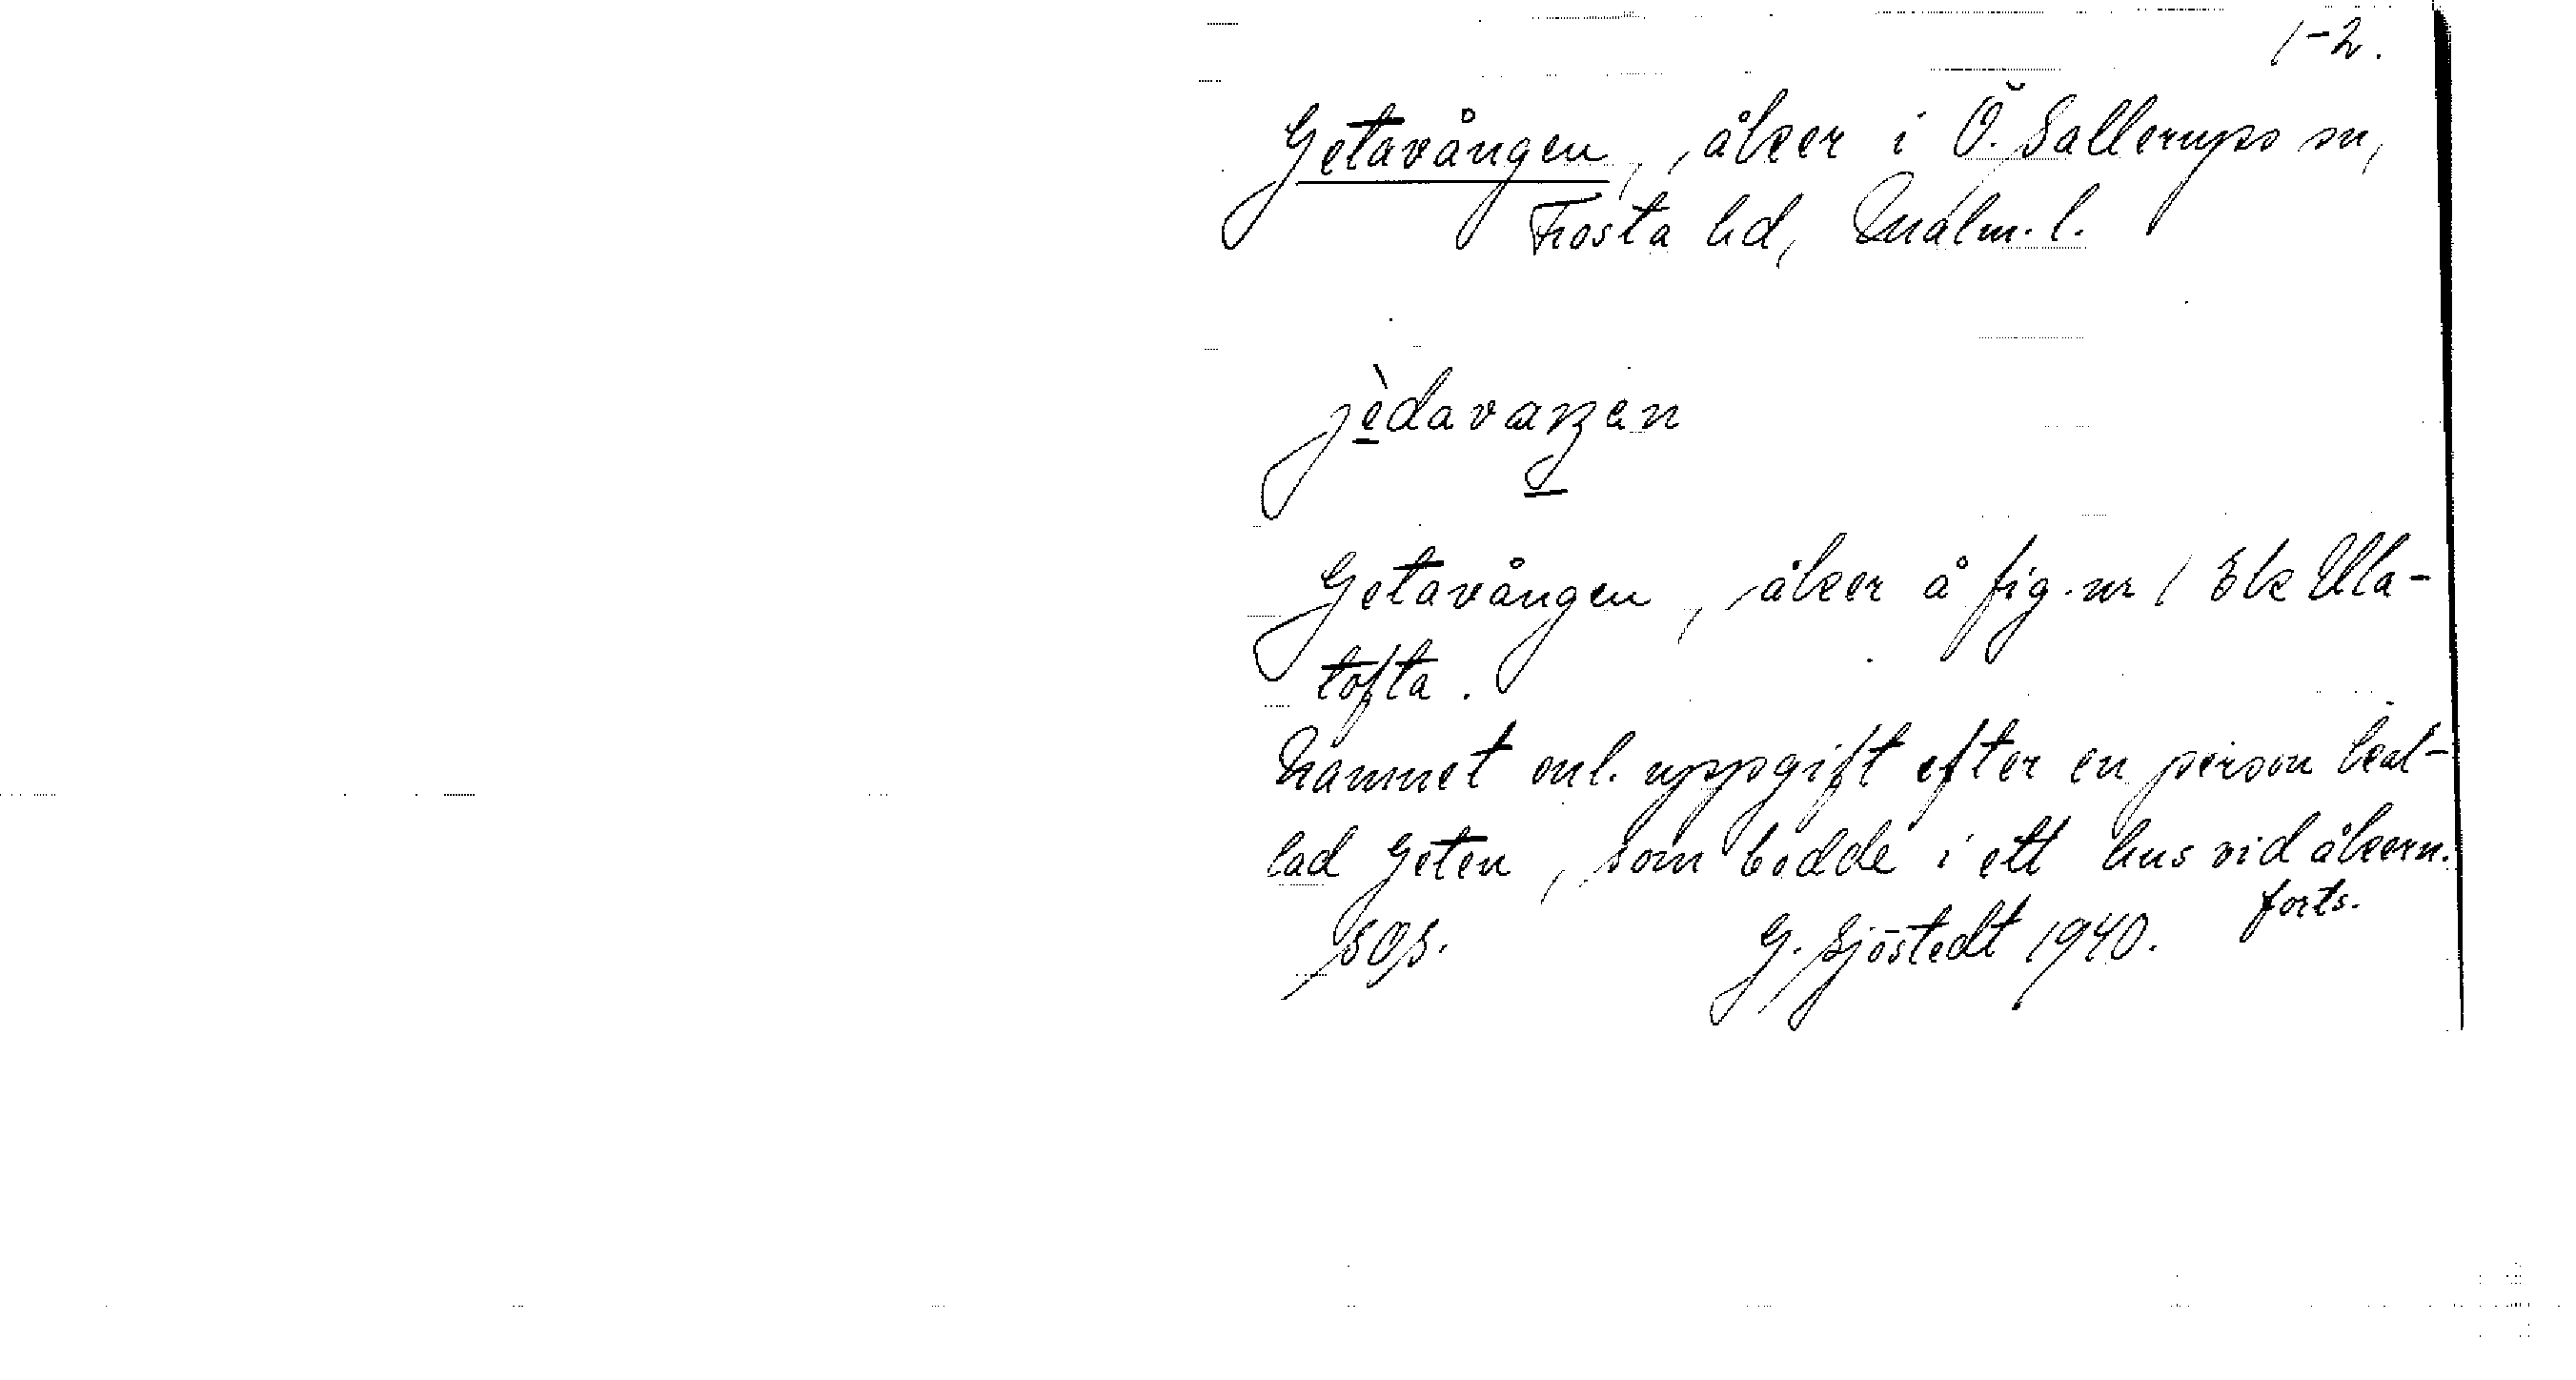 1-2.
Getavången, åker i Ö. Sallerups sn,
Frosta hd, Malm. l.
jèdavaŋen
Getavången, åker å fig. nr 1 Ek Ulla-
tofta.
Namnet enl. uppgift efter en person kal-
lad Geten, som bodde i ett hus vid åkern.
forts.
SOS. G. Sjöstedt 1940.